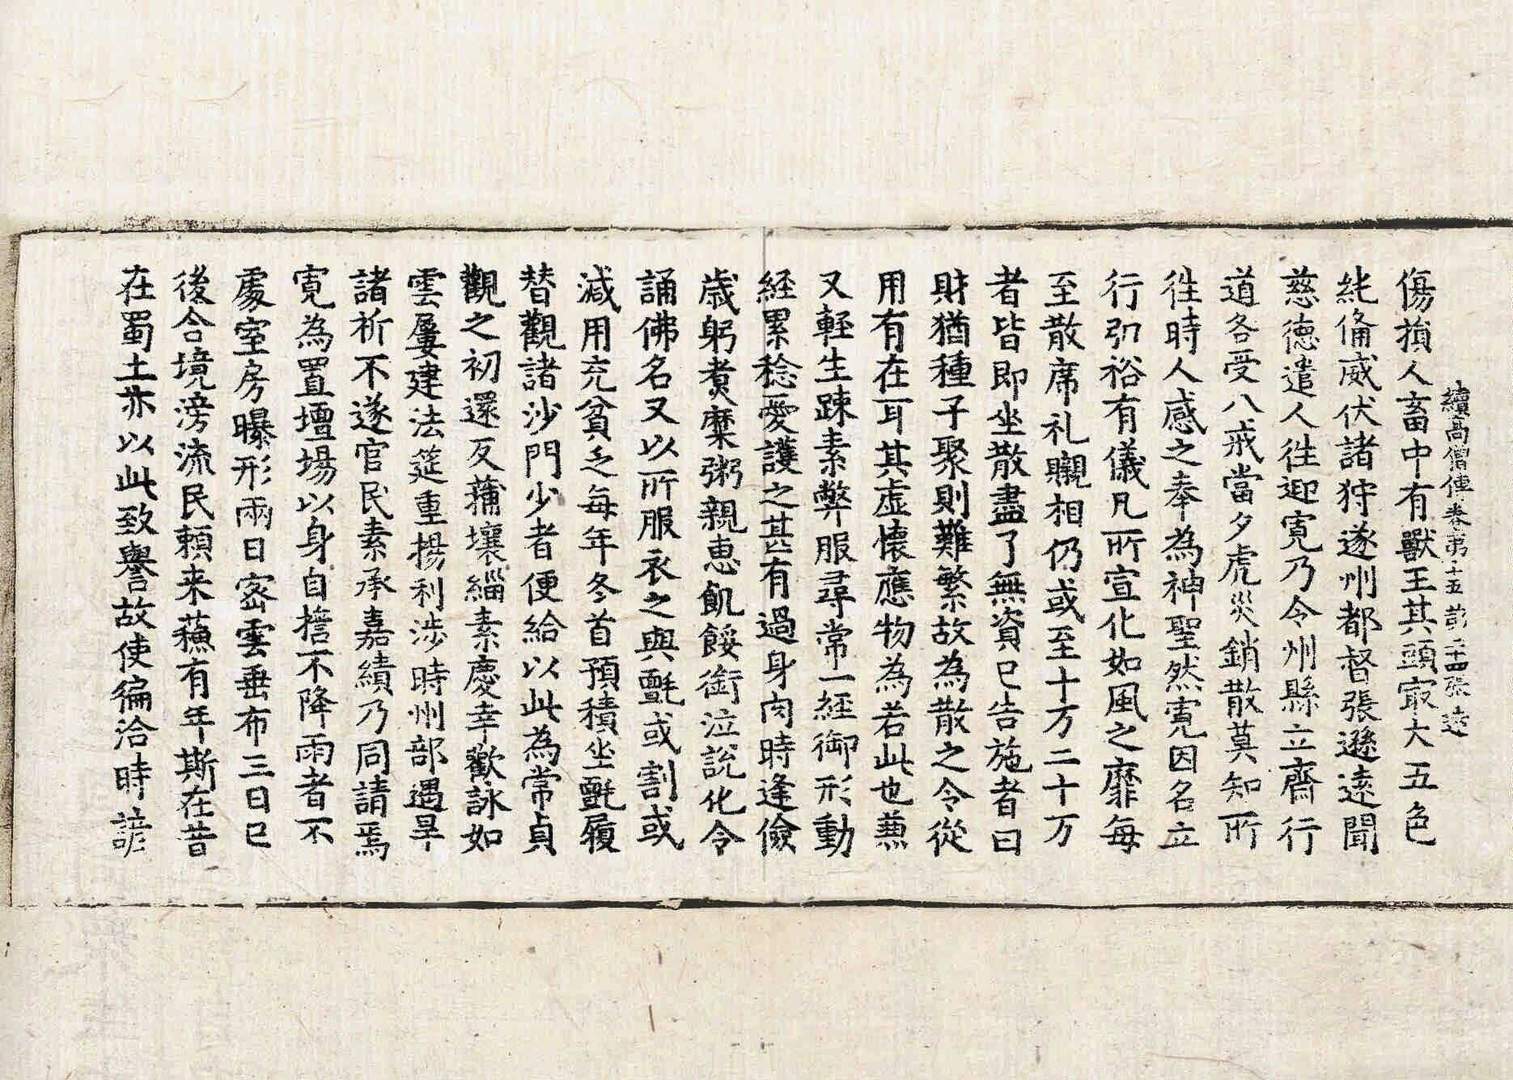 續高僧傳卷第十五 第二十四張 逵
傷損人畜中有獸王其頭㝡大五色
純俻威伏諸狩遂州都督張遜遠聞
慈德遣人徃迎寛乃令州縣立齋行
道各受八戒當夕虎災銷散莫知所
徃時人感之奉為神聖然寛因名立
行引裕有儀凡所宣化如風之靡每
至散席礼嚫相仍或至十万二十万
者皆即坐散盡了無資已告施者曰
財猶種子聚則難繁故為散之令從
用有在耳其虚懷應物為若此也兼
又輕生踈素弊服尋常一經御形動
經累稔愛護之甚有過身肉時逢儉
歳躬煑糜粥親惠飢餒銜泣說化令
誦佛名又以所服衣之與氈或割或
減用充貧乏每年冬首預積坐氈履
替觀諸沙門少者便給以此為常貞
觀之初還反蒲壤緇素慶幸歡詠如
雲屢建法筵重揚利涉時州部遇旱
諸祈不遂官民素承嘉績乃同請焉
寛為置壇場以身自擔不降雨者不
處室房曝形兩日密雲垂布三日已
後合境滂流民賴来蘓有年斯在昔
在蜀土亦以此致譽故使徧洽時諺